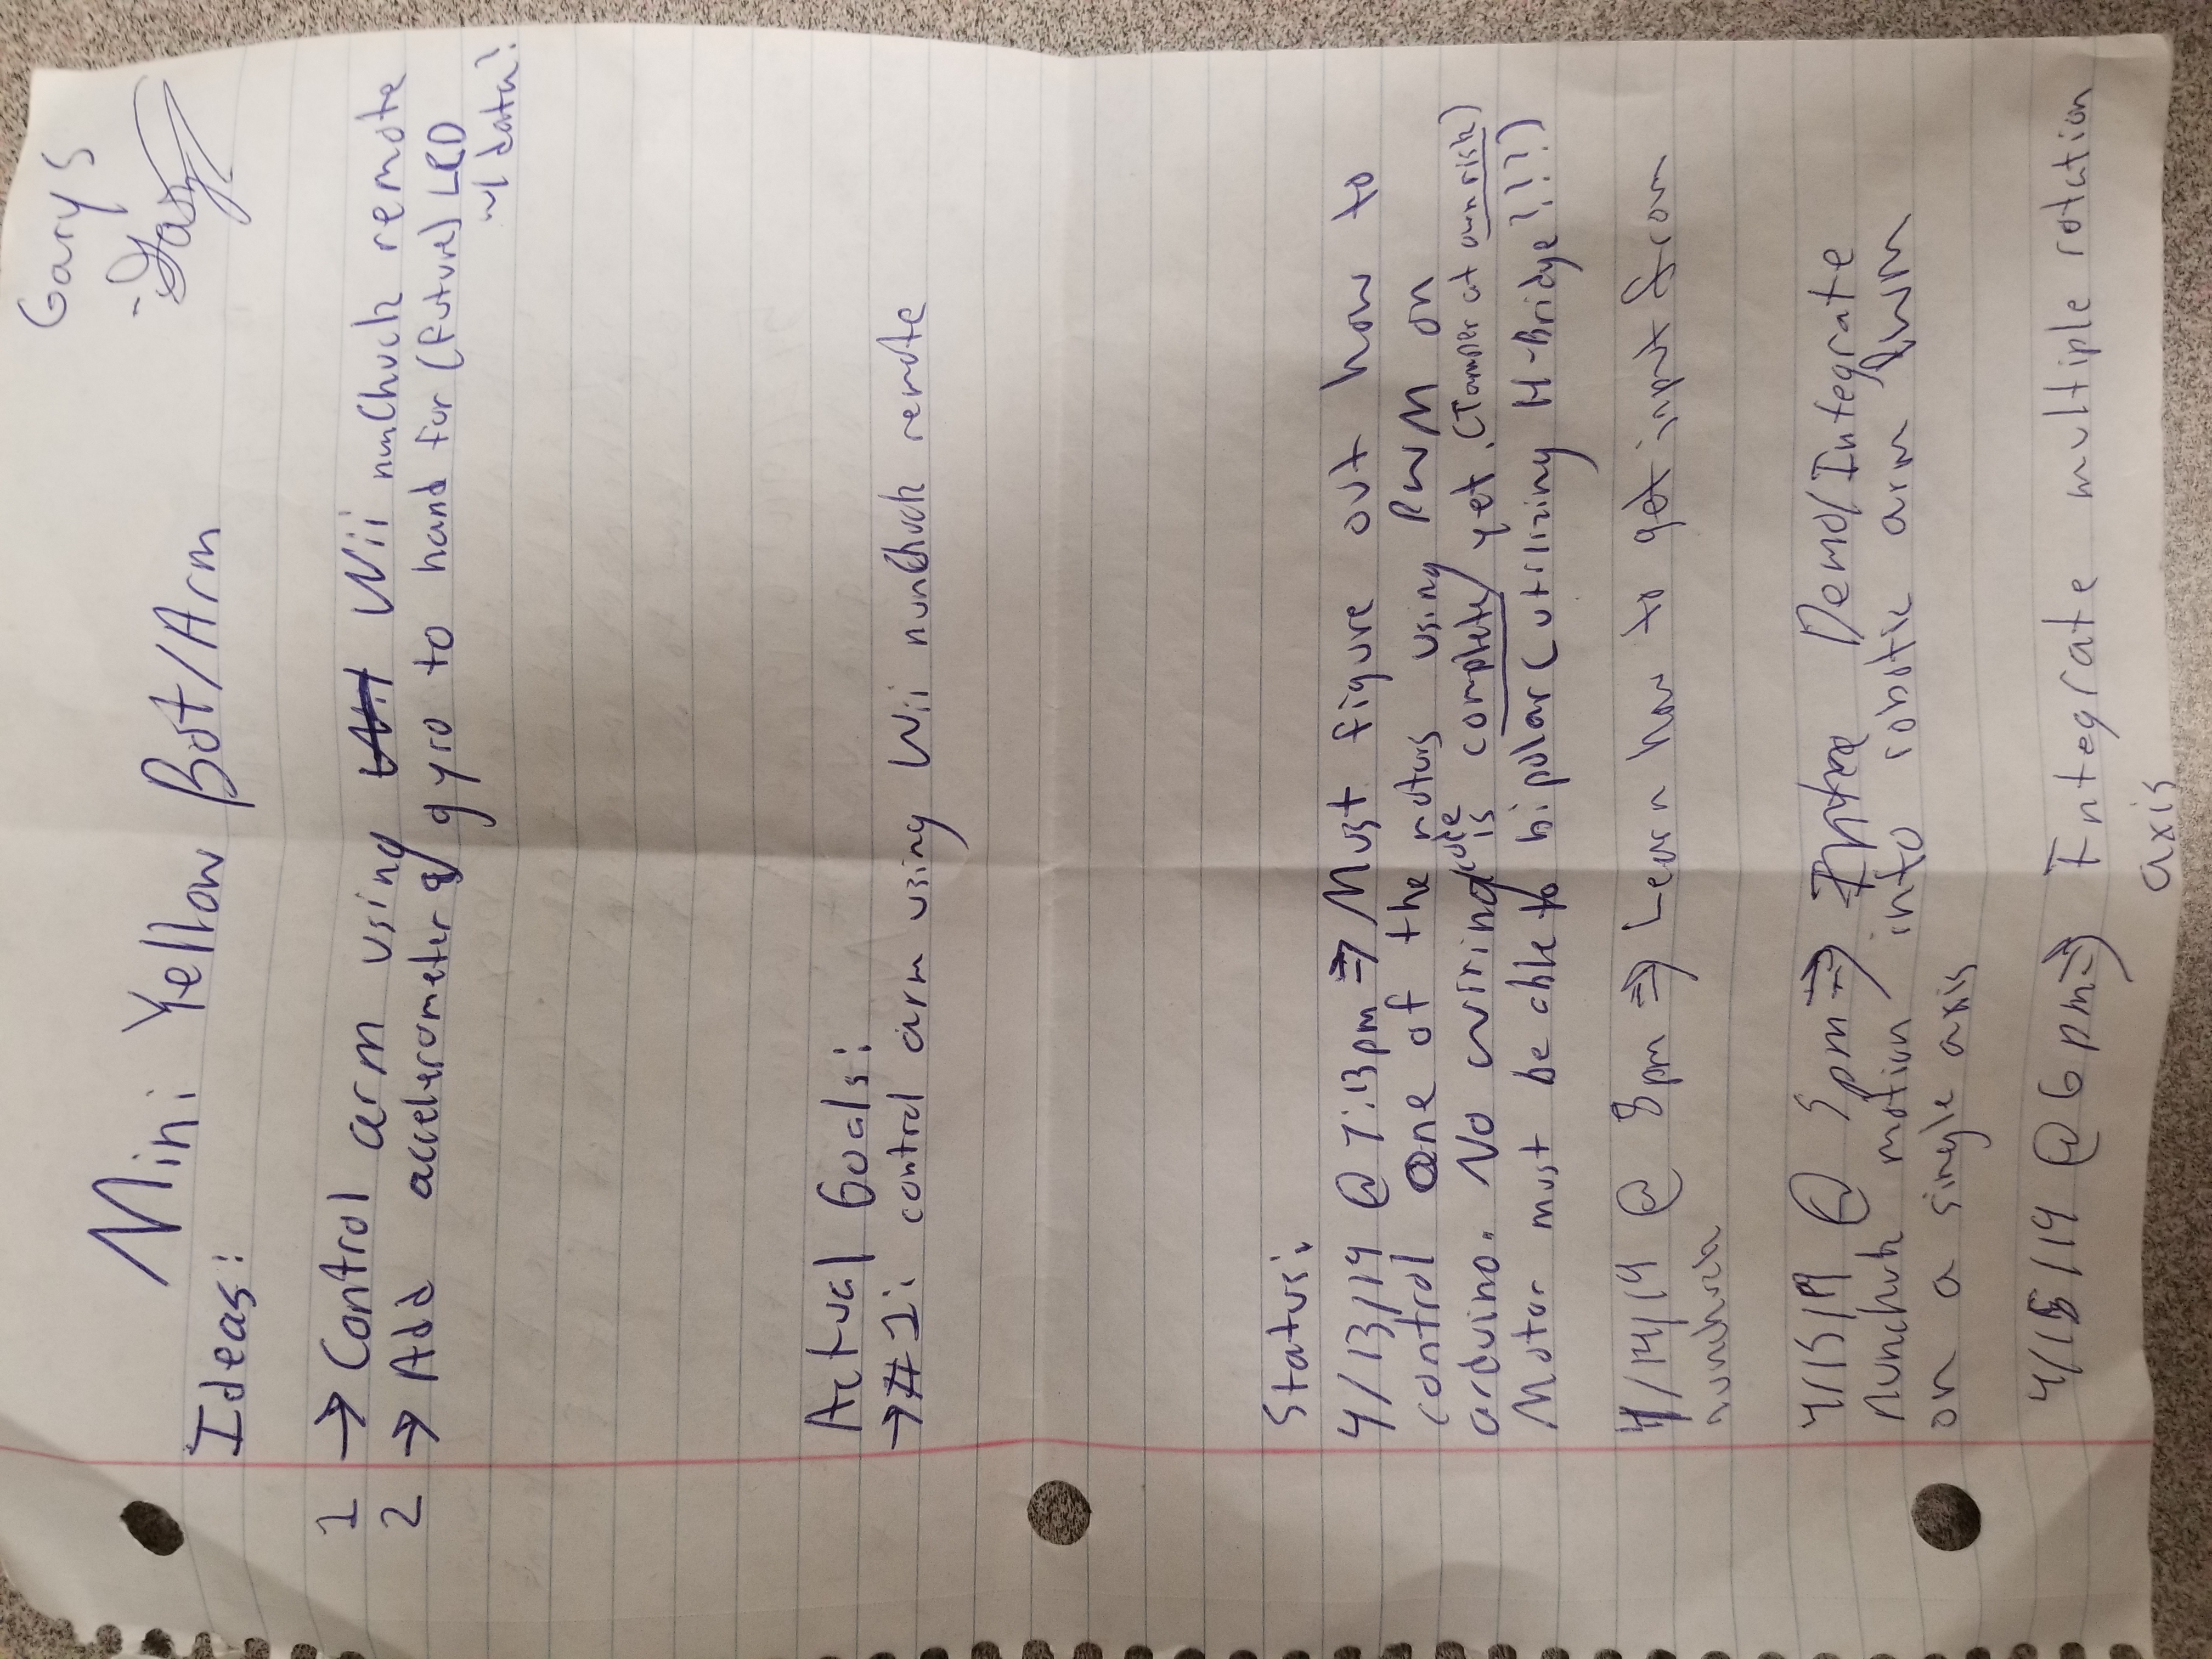 Gary S
Mini Yellow Bot/Arm
Ideas:
1 → Control arm using Wii nunChuck remote
2 → Add accelerometer & gyro to hand for (future) LCD
w/ data?
Actual Goals:
→ #1: control arm using Wii nunChuck remote
Status:
4/13/19 @ 7:13pm ⇒ Must figure out how to
control one of the motors using PWM on
arduino. No wiring/code is complete yet. (Tamper at own risk)
Motor must be able to bipolar (utilizing H-Bridge???)
4/14/19 @ 8pm ⇒ Learn how to get input from
nunchuck
4/15/19 @ 5pm ⇒ Demo/Integrate
nunchuk motion into robotic arm PWM
on a single axis
4/15/19 @ 6pm ⇒ Integrate multiple rotation
axis